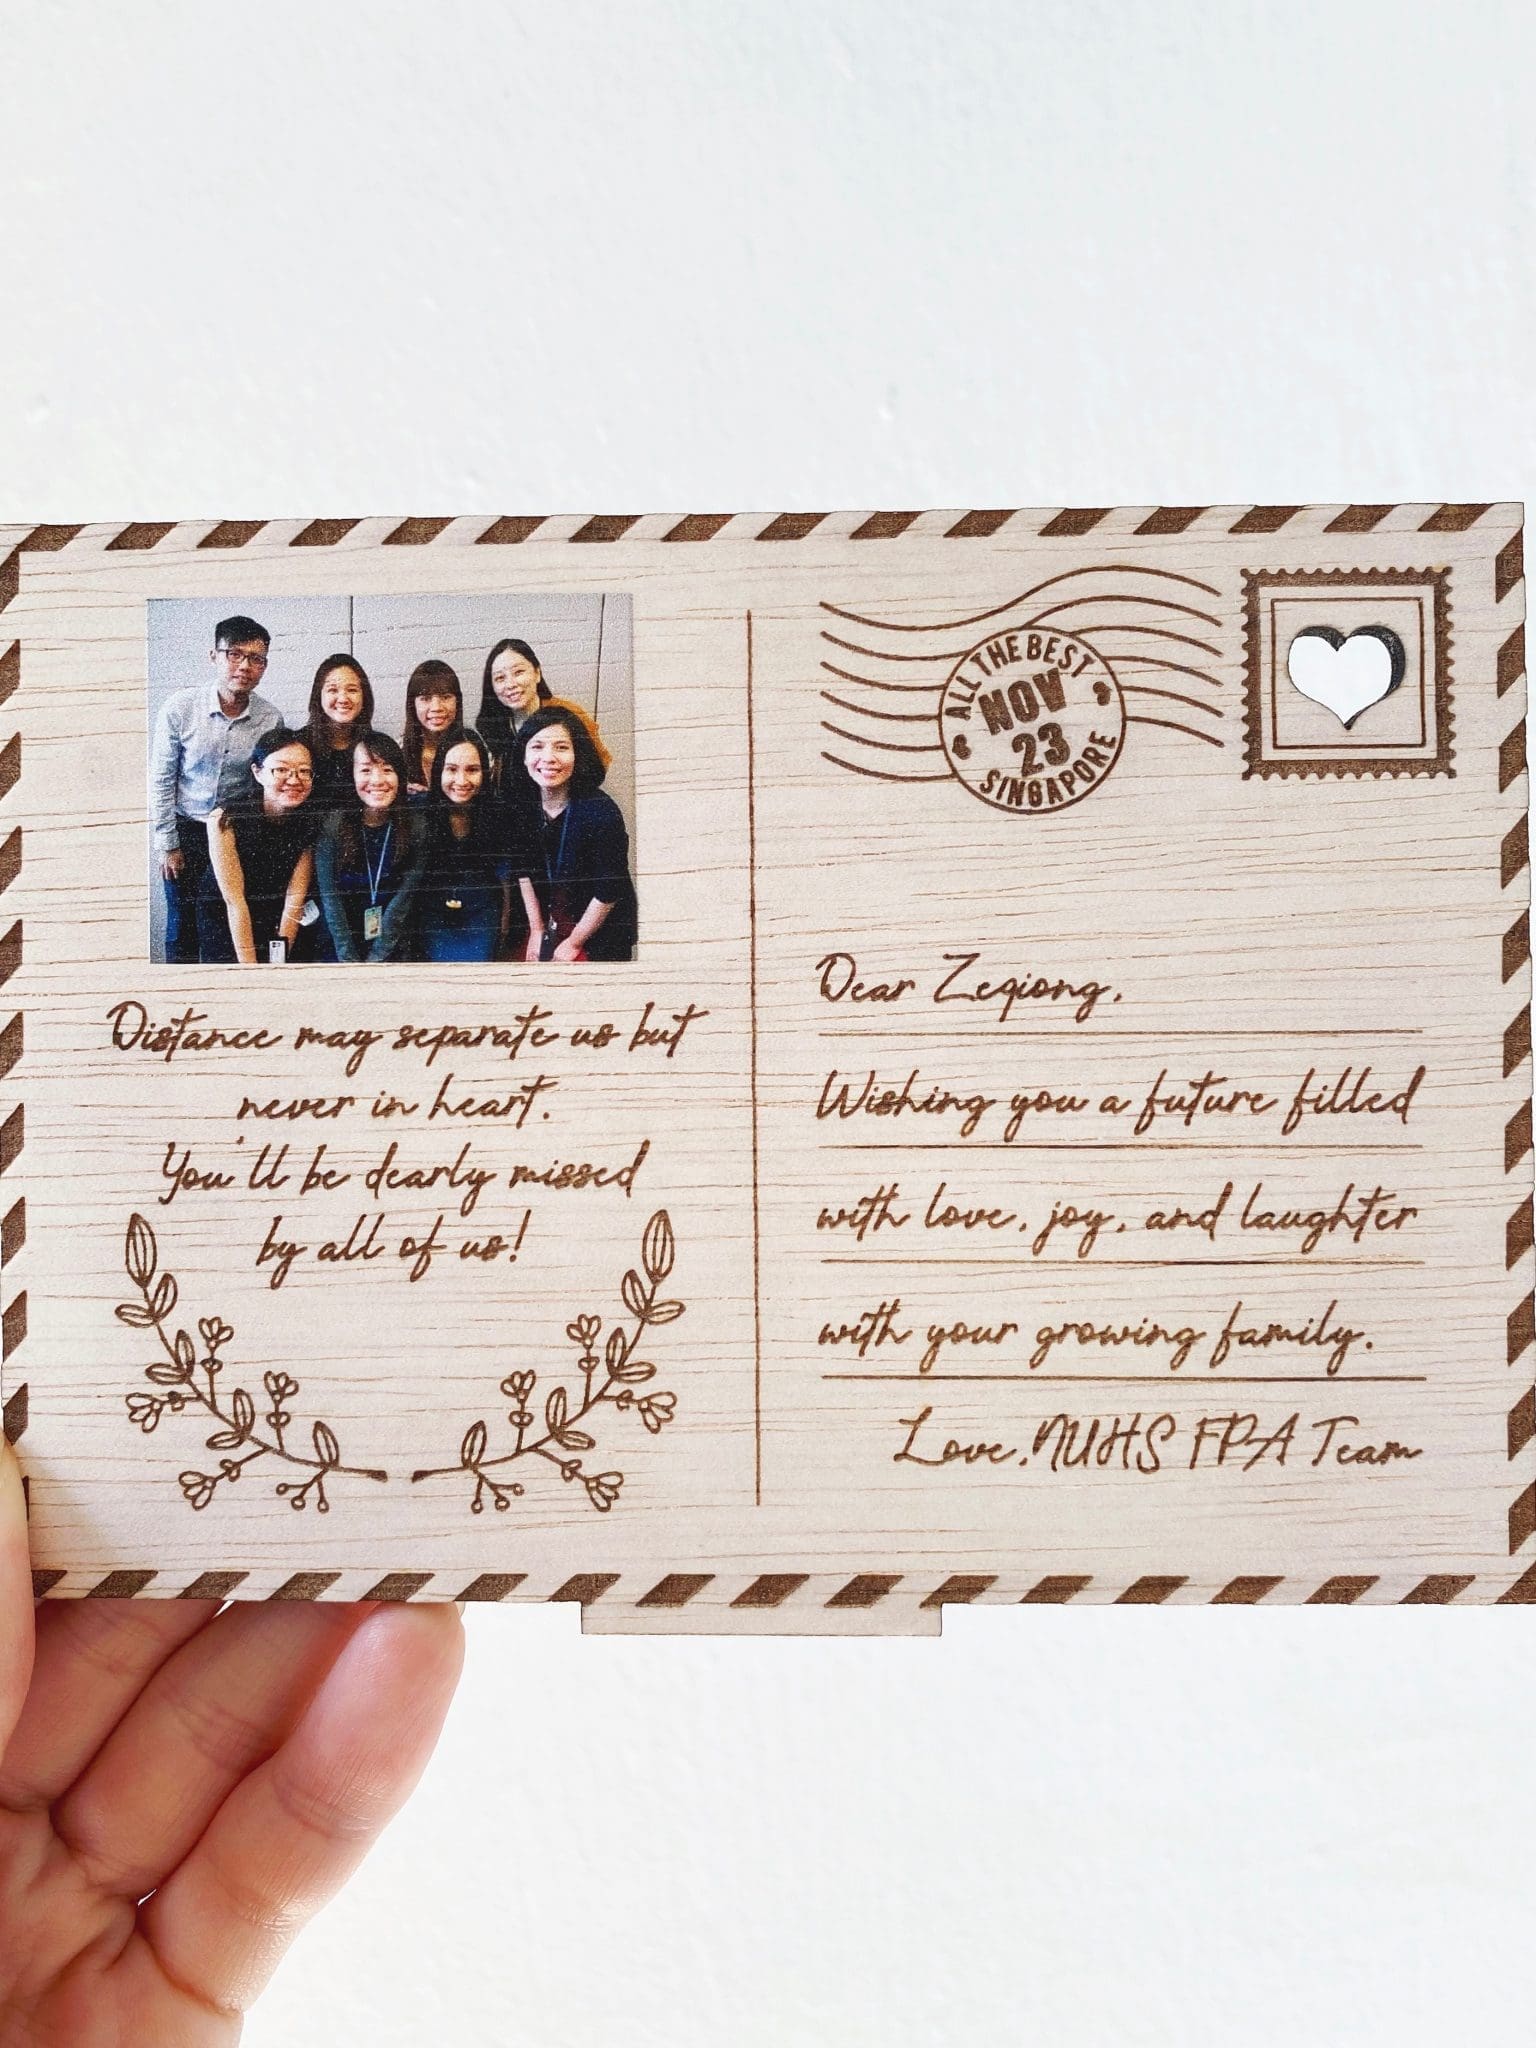 Distance may separate us but
never in heart.
You'll be dearly missed
by all of us!
ALL THE BEST
NOV
23
SINGAPORE
Dear Zeqiong,
Wishing you a future filled
with love, joy, and laughter
with your growing family.
Love, NUHS FPA Team